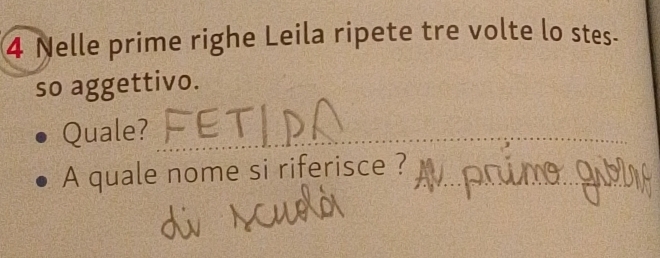 4 Nelle prime righe Leila ripete tre volte lo stes-
so aggettivo.
• Quale? FETIDA
• A quale nome si riferisce ? Al primo giorno
di scuola